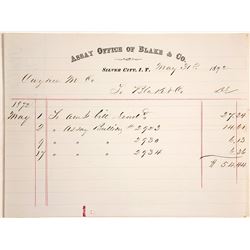 ASSAY OFFICE OF BLAKE & CO.
SILVER CITY, I. T. May 31st, 1872
M. Co
To Blake & Co Dr
1872
May 1 To am't bill 27.24
2 " Assay Bullion # 2923 14.61
9 " " " 2930
17 " " " 2934
$ 54.44